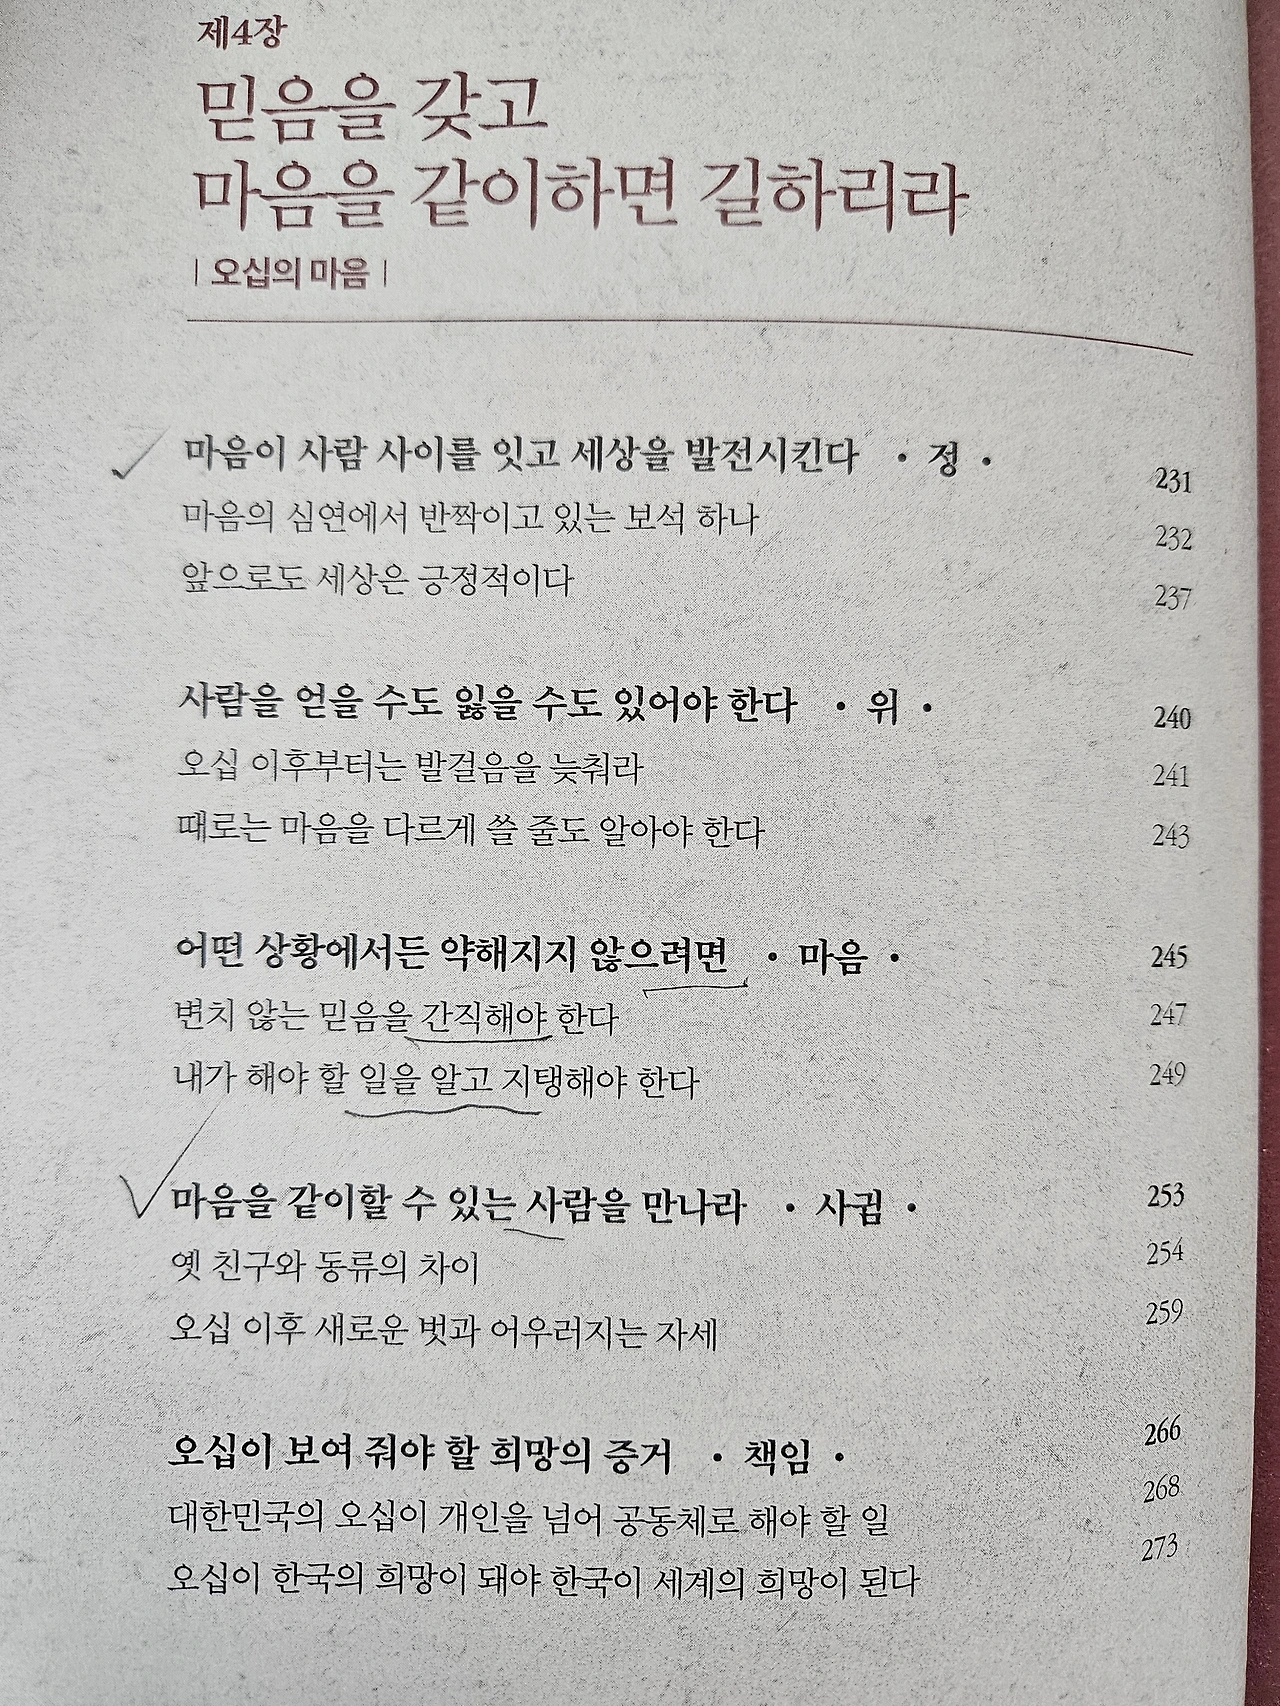 제4장
믿음을 갖고
마음을 같이하면 길하리라
| 오십의 마음 |
마음이 사람 사이를 잇고 세상을 발전시킨다 • 정 • 231
마음의 심연에서 반짝이고 있는 보석 하나 232
앞으로도 세상은 긍정적이다 237
사람을 얻을 수도 잃을 수도 있어야 한다 • 위 • 240
오십 이후부터는 발걸음을 늦춰라 241
때로는 마음을 다르게 쓸 줄도 알아야 한다 243
어떤 상황에서든 약해지지 않으려면 • 마음 • 245
변치 않는 믿음을 간직해야 한다 247
내가 해야 할 일을 알고 지탱해야 한다 249
마음을 같이할 수 있는 사람을 만나라 • 사귐 • 253
옛 친구와 동류의 차이 254
오십 이후 새로운 벗과 어우러지는 자세 259
오십이 보여 줘야 할 희망의 증거 • 책임 • 266
대한민국의 오십이 개인을 넘어 공동체로 해야 할 일 268
오십이 한국의 희망이 돼야 한국이 세계의 희망이 된다 273